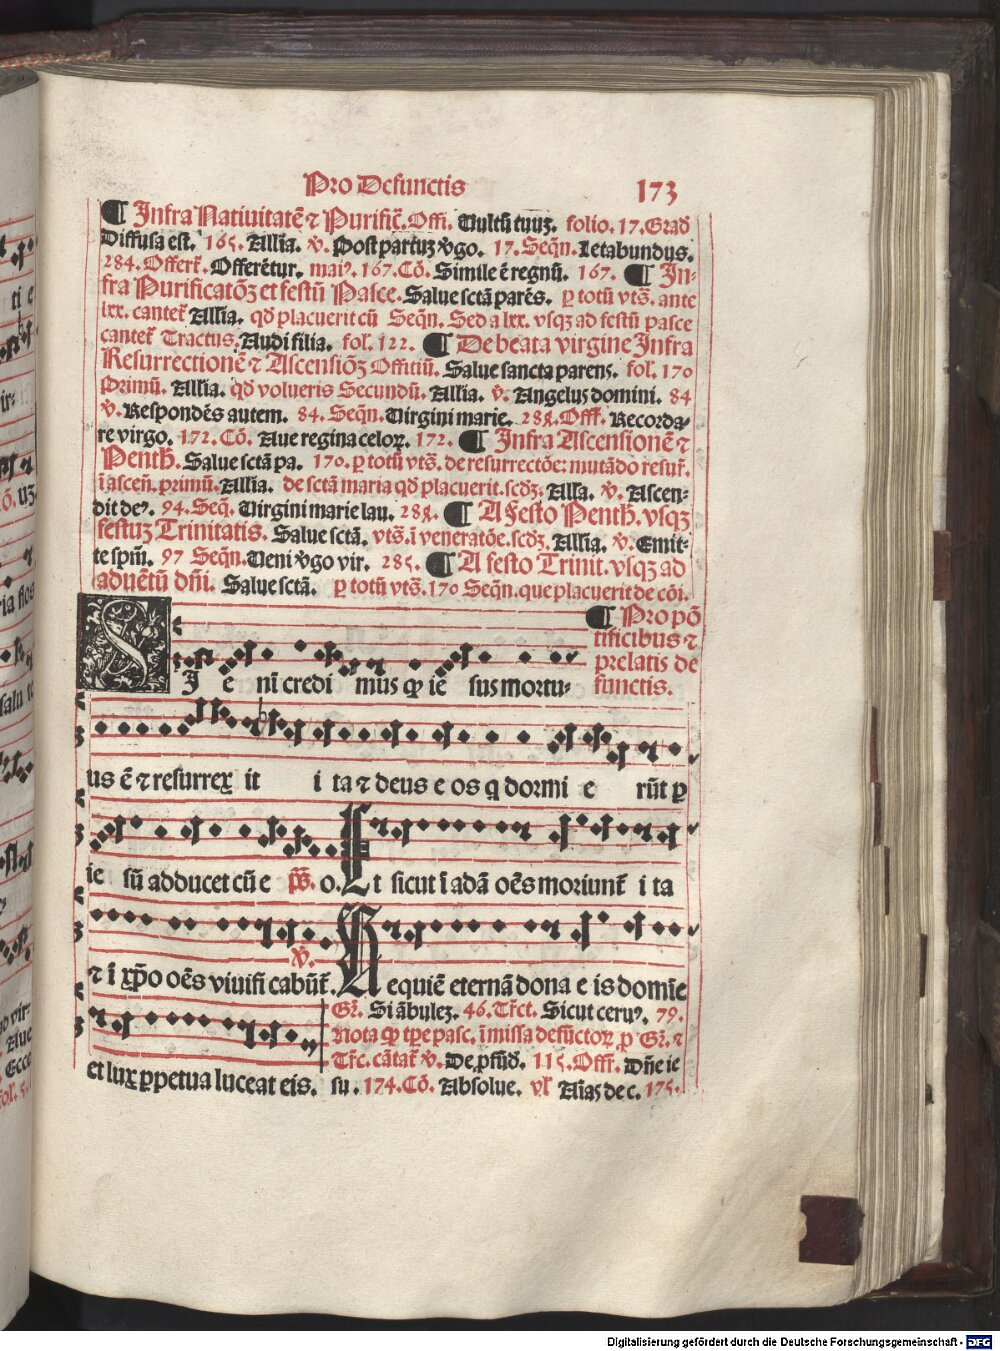 Pro Defunctis 173
¶ Infra Natiuitatē ⁊ Purific̄. Offi. Uultū tuuꝫ. folio. 17. Grad̄
Diffusa est. 165. Allīa. v̄. Post partuꝫ v̄go. 17. Seq̄n. Letabundus.
284. Offert̄. Offerētur. mai⁹. 167. Cō. Simile ē regnū. 167. ¶ In-
fra Purificatōꝫ et festū Pasce. Salue sctā parēs. ꝑ totū vts̄. ante
lxx. cantet̄ Allīa. qd̄ placuerit cū Seq̄n. Sed a lxx. vsqꝫ ad festū pasce
cantet̄ Tractus. Audi filia. fol. 122. ¶ De beata virgine Infra
Resurrectionē ⁊ Ascensiōꝫ Offitiū. Salue sancta parens. fol. 170
Primū. Allīa. qd̄ volueris Secundū. Allīa. v̄. Angelus domini. 84
v̄. Respondēs autem. 84. Seq̄n. Uirgini marie. 28ꝭ. Off̄. Recorda-
re virgo. 172. Cō. Aue regina celoꝝ. 172. ¶ Infra Ascensionē ⁊
Penth̄. Salue sctā pa. 170. ꝑ totū vts̄. de resurrectōe: mutādo resur̄.
ī asceñ. primū. Allīa. de sctā maria qd̄ placuerit. scd̄ꝫ. Alla. v̄. Ascen-
dit de⁹. 94. Seq̄. Uirgini marie lau. 28ꝭ. ¶ A festo Penth̄. vsqꝫ
festuꝫ Trinitatis. Salue sctā. vts̄. ī veneratōe. scd̄ꝫ. Allīa. v̄. Emit-
te spm̄. 97 Seq̄n. Ueni v̄go vir. 285. ¶ A festo Trinit. vsqꝫ ad
aduētū dn̄i. Salue sctā. ꝑ totū vts̄. 170 Seq̄n. que placuerit de cōi.
¶ Pro pō
tificibus ⁊
prelatis de
functis.
SI e ni credi mus qꝫ ie sus mortu-
us ē ⁊ resurrex it i ta ⁊ deus e os q dormi e rūt ꝑ
ie sū adducet cū e p̄s. o. Et sicut ī adā oēs moriunt̄ i ta
⁊ ī xp̄o oēs viuifi cabūt̄. v̄. Requiē eternā dona e is domīe
et lux ꝑpetua luceat eis.
Gr̄. Si ābuleꝫ. 46. Tr̄ct. Sicut ceru⁹. 79.
Nota qꝫ tp̄e pasc. ī missa defūctoꝝ ꝑ Gr̄. ⁊
Tr̄c. cātat̄ v̄. De ꝓfūd̄. 115. Off̄. Dn̄e ie
su. 174. Cō. Absolue. vl̄ Aīas de c. 175.
Digitalisierung gefördert durch die Deutsche Forschungsgemeinschaft - DFG